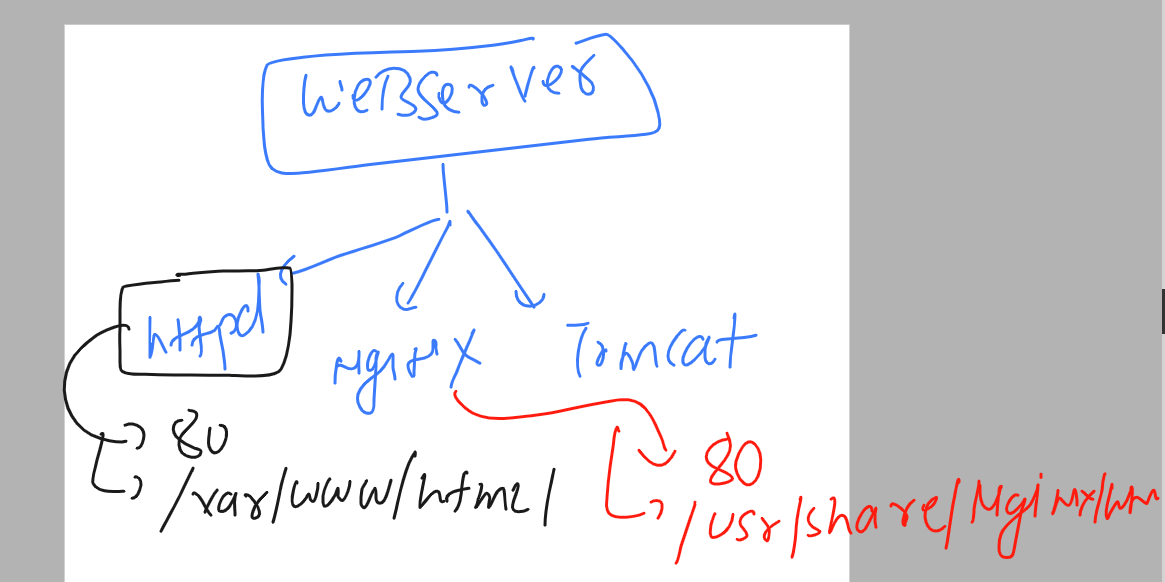 WeBServer
httpd
Nginx
Tomcat
80
/var/www/html/
80
/usr/share/Nginx/hm